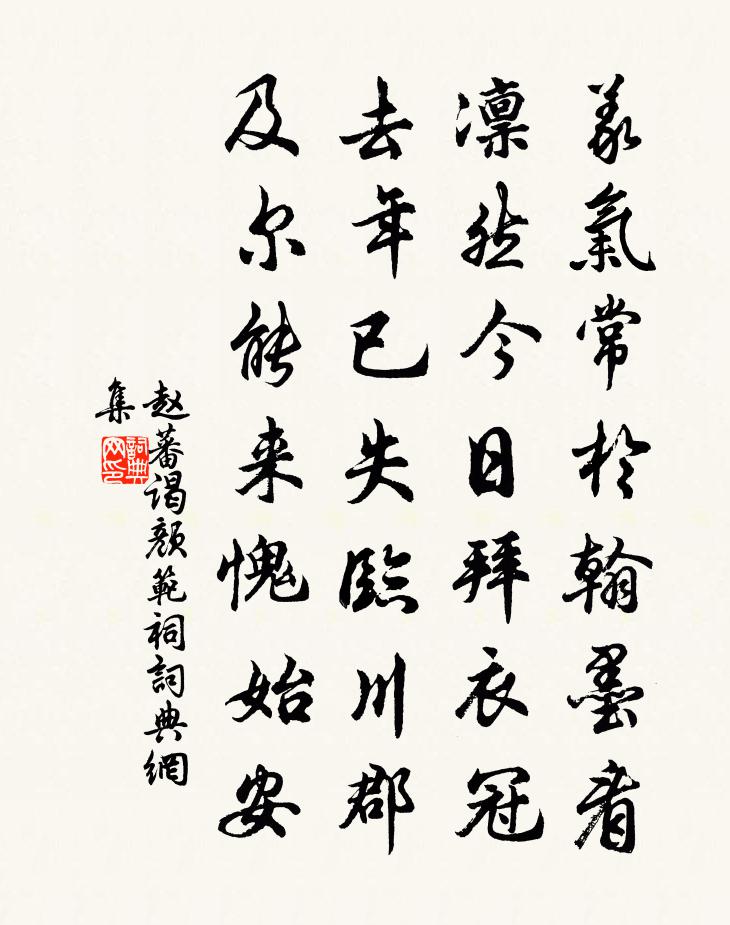 義氣常於翰墨看
凜然今日拜衣冠
去年已失臨川郡
及尔能来愧始安
赵蕃谒顏範祠詞典網
集
詞典
网印